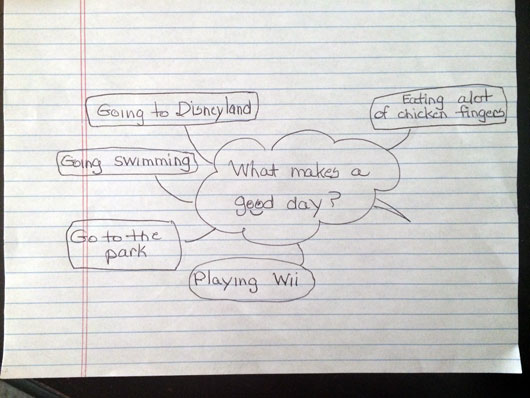 Going to Disneyland
Eating alot
of chicken fingers
Going swimming
What makes a
good day?
Go to the
park
Playing Wii